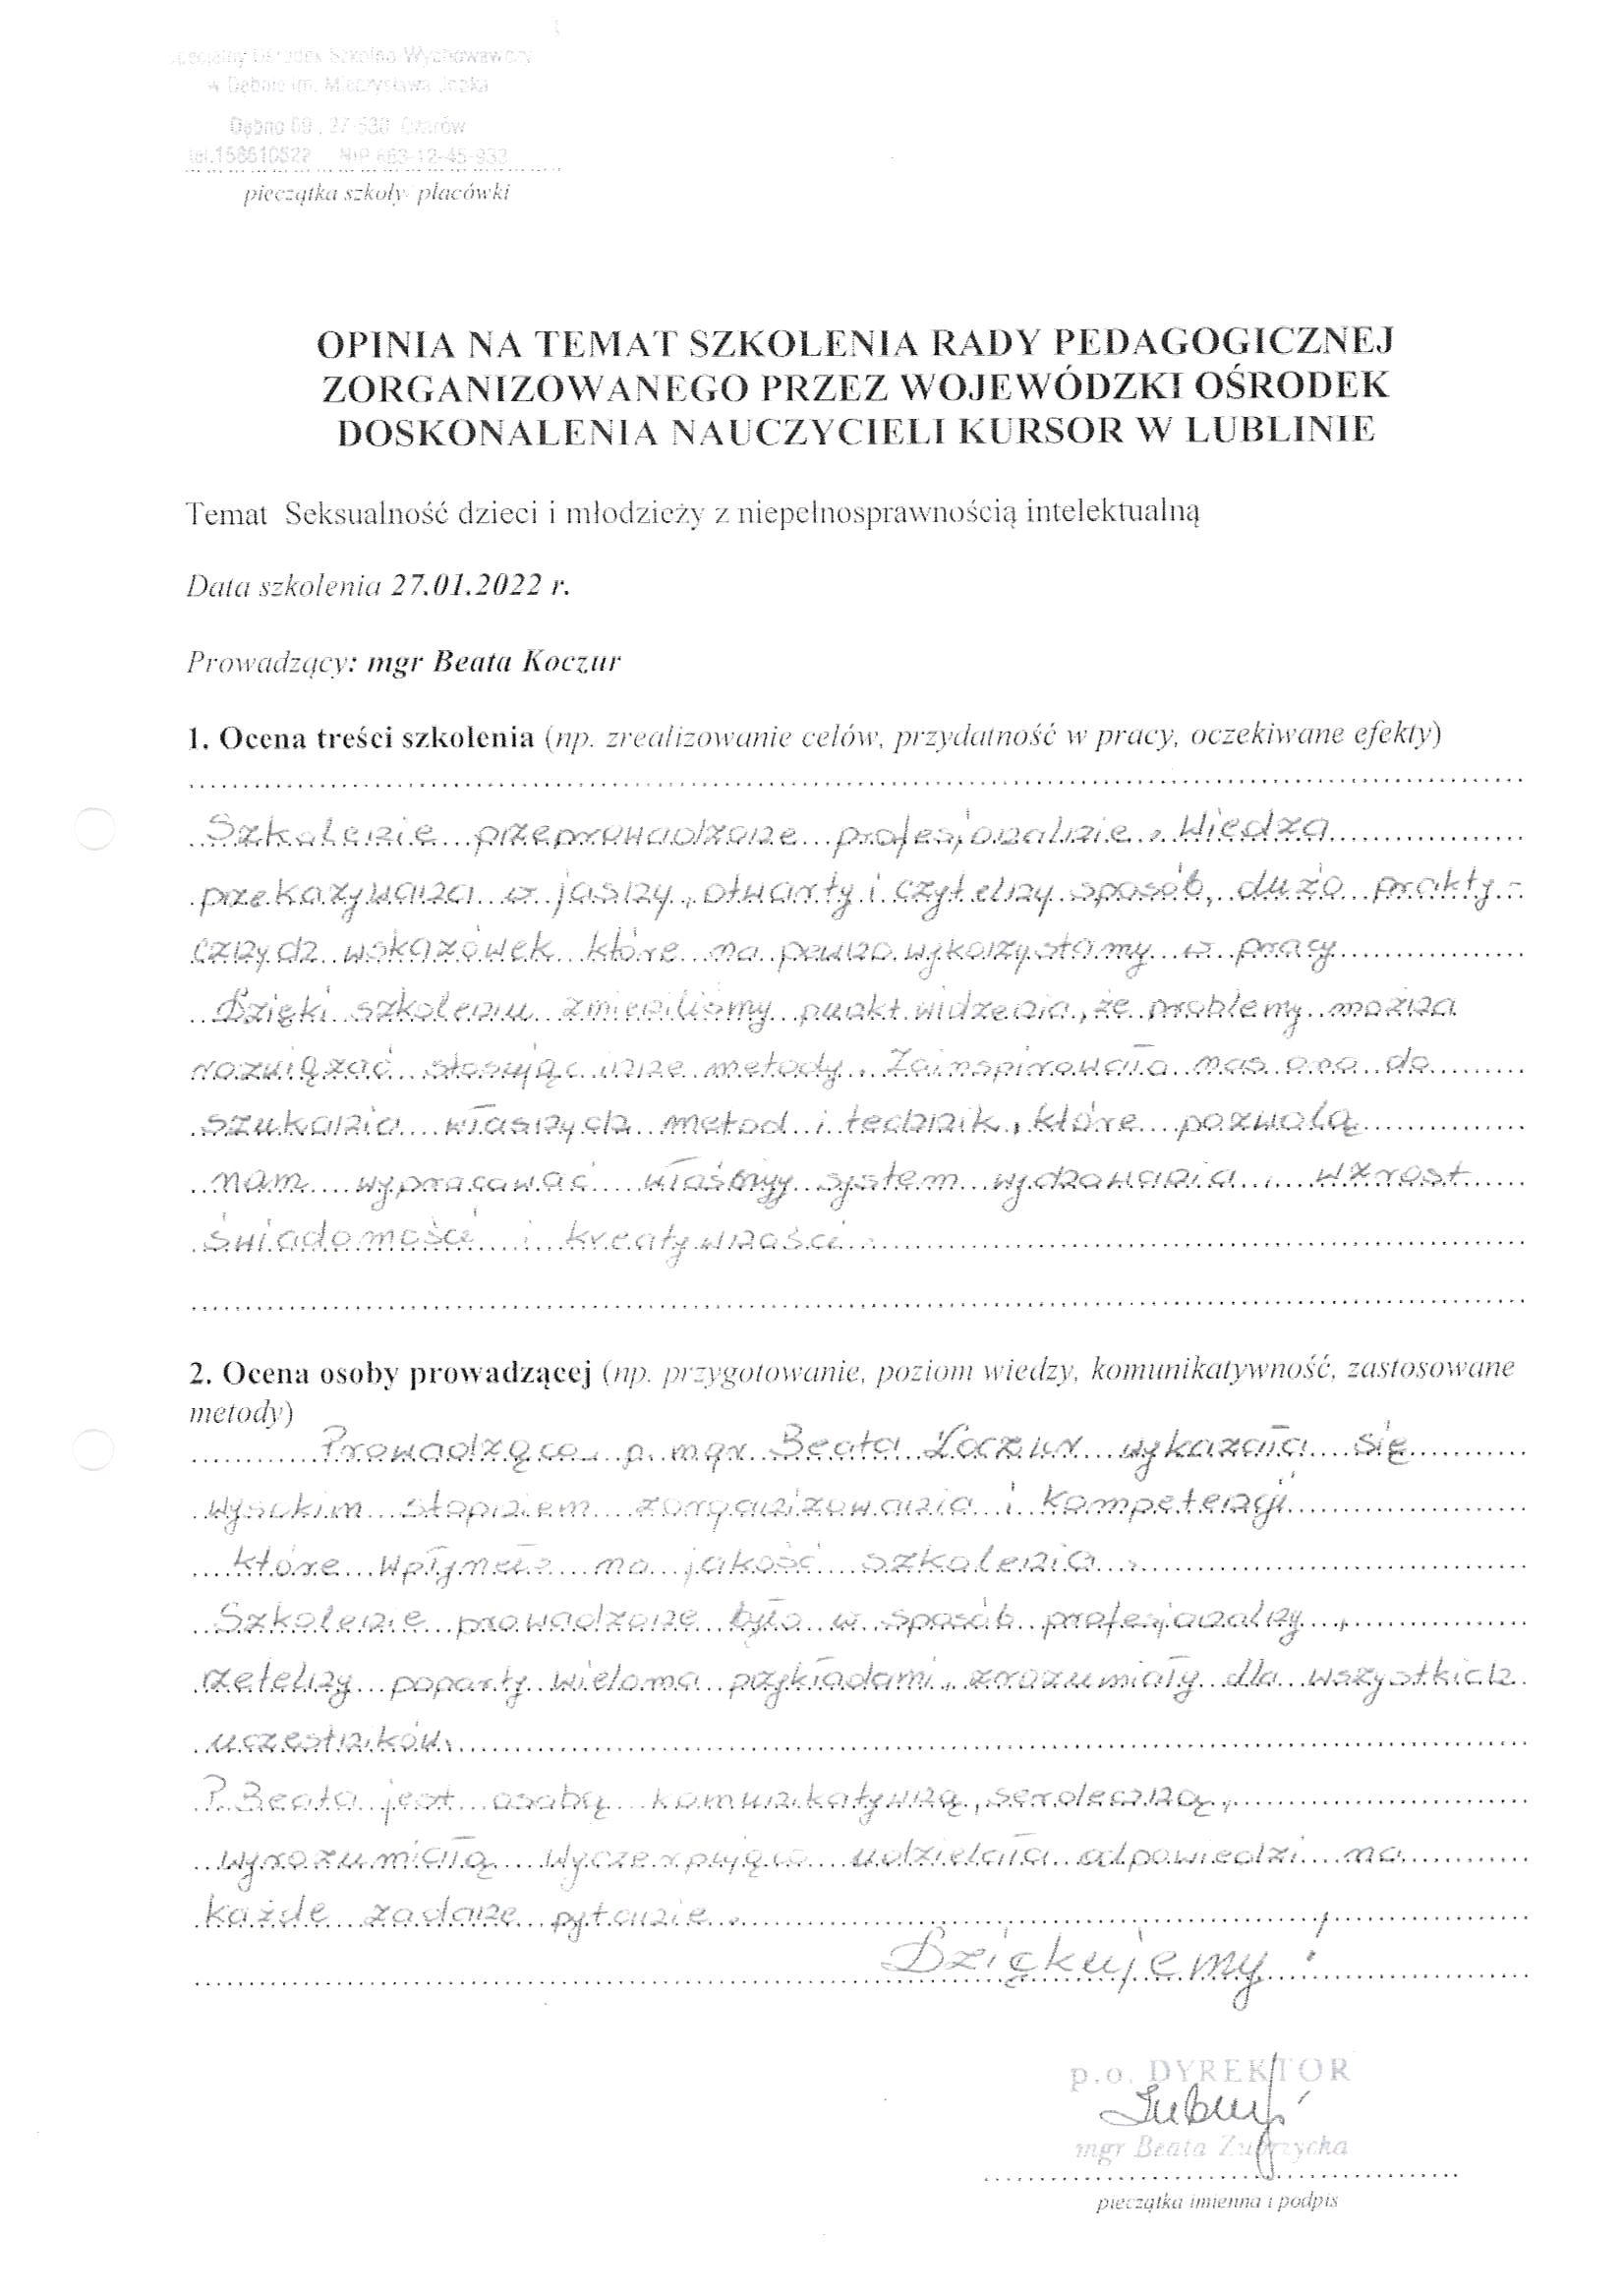 Specjalny Ośrodek Szkolno-Wychowawczy
w Dębnie im. Mieczysława
27-530 Ożarów
tel.158610522 NIP 863-12-45-933
pieczątka szkoły placówki
OPINIA NA TEMAT SZKOLENIA RADY PEDAGOGICZNEJ
ZORGANIZOWANEGO PRZEZ WOJEWÓDZKI OŚRODEK
DOSKONALENIA NAUCZYCIELI KURSOR W LUBLINIE
Temat Seksualność dzieci i młodzieży z niepełnosprawnością intelektualną
Data szkolenia 27.01.2022 r.
Prowadzący: mgr Beata Koczur
1. Ocena treści szkolenia (np. zrealizowanie celów, przydatność w pracy, oczekiwane efekty)
Szkolenie przeprowadzone profesjonalnie. Wiedza
przekazywana w jasny, otwarty i czytelny sposób, dużo prakty-
cznych wskazówek które na pewno wykorzystamy w pracy
Dzięki szkoleniu zmieniliśmy punkt widzenia, że problemy można
rozwiązać stosując inne metody. Zainspirowała nas ona do
szukania własnych metod i technik, które pozwolą
nam wypracować własny system wychowania, wzrost
świadomości i kreatywności.
2. Ocena osoby prowadzącej (np. przygotowanie, poziom wiedzy, komunikatywność, zastosowane
metody)
Prowadząca p. mgr Beata Koczur wykazała się
wysokim stopniem zorganizowania i kompetencji
które wpłynęło na jakość szkolenia.
Szkolenie prowadzone było w sposób profesjonalny,
rzetelny poparty wieloma przykładami, zrozumiały dla wszystkich
uczestników.
P. Beata jest osobą komunikatywną, serdeczną,
wyrozumiałą. Wyczerpująco udzielała odpowiedzi na
każde zadane pytanie.
Dziękujemy!
p.o. DYREKTOR
mgr Beata Zubrzycka
pieczątka imienna i podpis